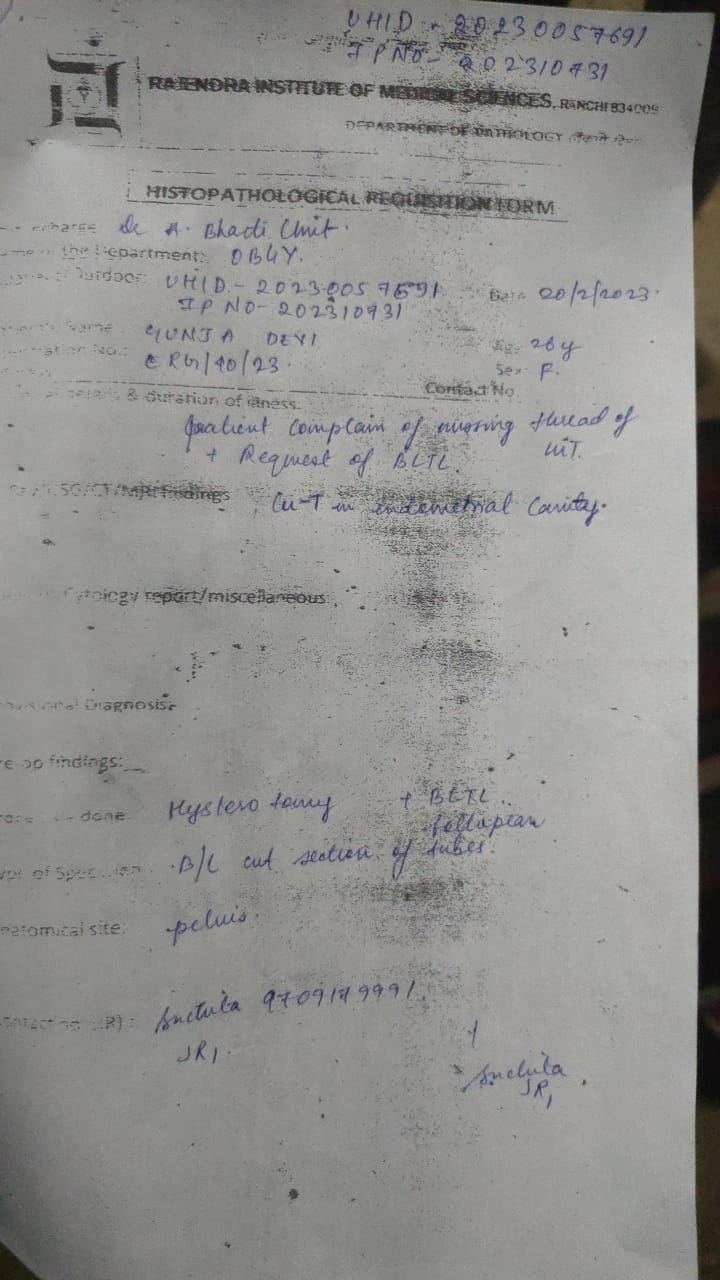 UHID - 20230057691
IP NO- 202310731
RAJENDRA INSTITUTE OF MEDICAL SCIENCES, RANCHI 834009
DEPARTMENT OF PATHOLOGY
HISTOPATHOLOGICAL REQUISITION FORM
Dr A. Bhadi Unit.
the Department: OBGY.
UHID - 20230057691 Date 20/2/2023
IP NO- 202310731
Name GUNJA DEVI Age 26y
No.: ERG/40/23. Sex F.
Contact No
& duration of illness
patient complain of missing thread of
+ Request of BLTL. CuT.
findings Cu-T in endometrial Cavity.
Cytology report/miscellaneous
Diagnosis
findings:
done Hysterotomy + BLTL
fallopian
of B/L cut section of tubes.
anatomical site: pelvis.
Suchita 9709179991
JR1.
Suchita
JR1